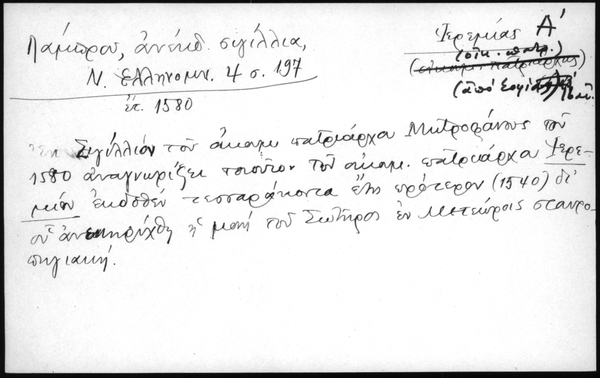 Λάμπρου, ἀνέκδ. σιγίλλια,
Ν. Ἑλληνομν. 4 σ. 197
ἔτ. 1580
Ἱερεμίας Α'
(οἰκ. πατρ.)
(ἀπὸ Σοφίας
Σιγίλλιον τοῦ οἰκουμ. πατριάρχου Μητροφάνους τοῦ
1580 ἀναγνωρίζει τοιοῦτον τοῦ οἰκουμ. πατριάρχου Ἱερε-
μίου ἐκδοθὲν τεσσαράκοντα ἔτη πρότερον (1540) δι'
οὗ ἀνεκηρύχθη ἡ μονὴ τοῦ Σωτῆρος ἐν Μετεώροις σταυρο-
πηγιακή.